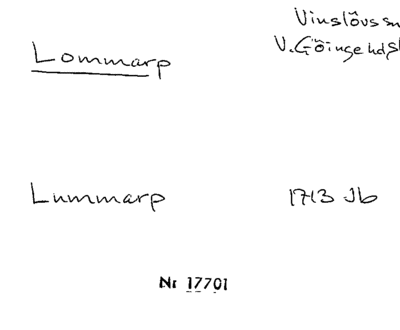 Vinslövs sn
V. Göinge hds
Lommarp
Lummarp 1713 Jb
Nr 17701